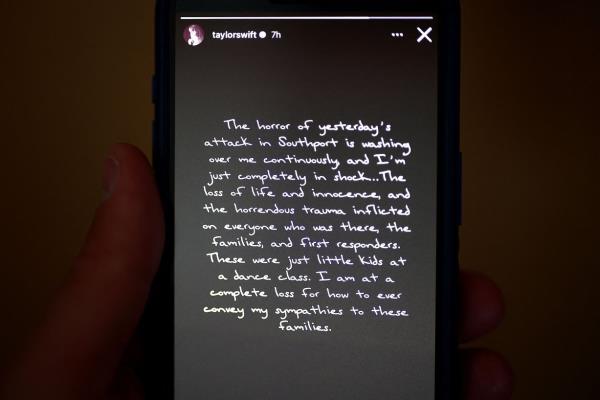 taylorswift 7h
The horror of yesterday's
attack in Southport is washing
over me continuously, and I'm
just completely in shock...The
loss of life and innocence, and
the horrendous trauma inflicted
on everyone who was there, the
families, and first responders.
These were just little kids at
a dance class. I am at a
complete loss for how to ever
convey my sympathies to these
families.